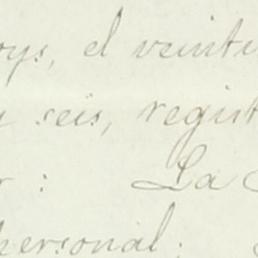 oys, el veintu
y seis, regist
r : La
personal: